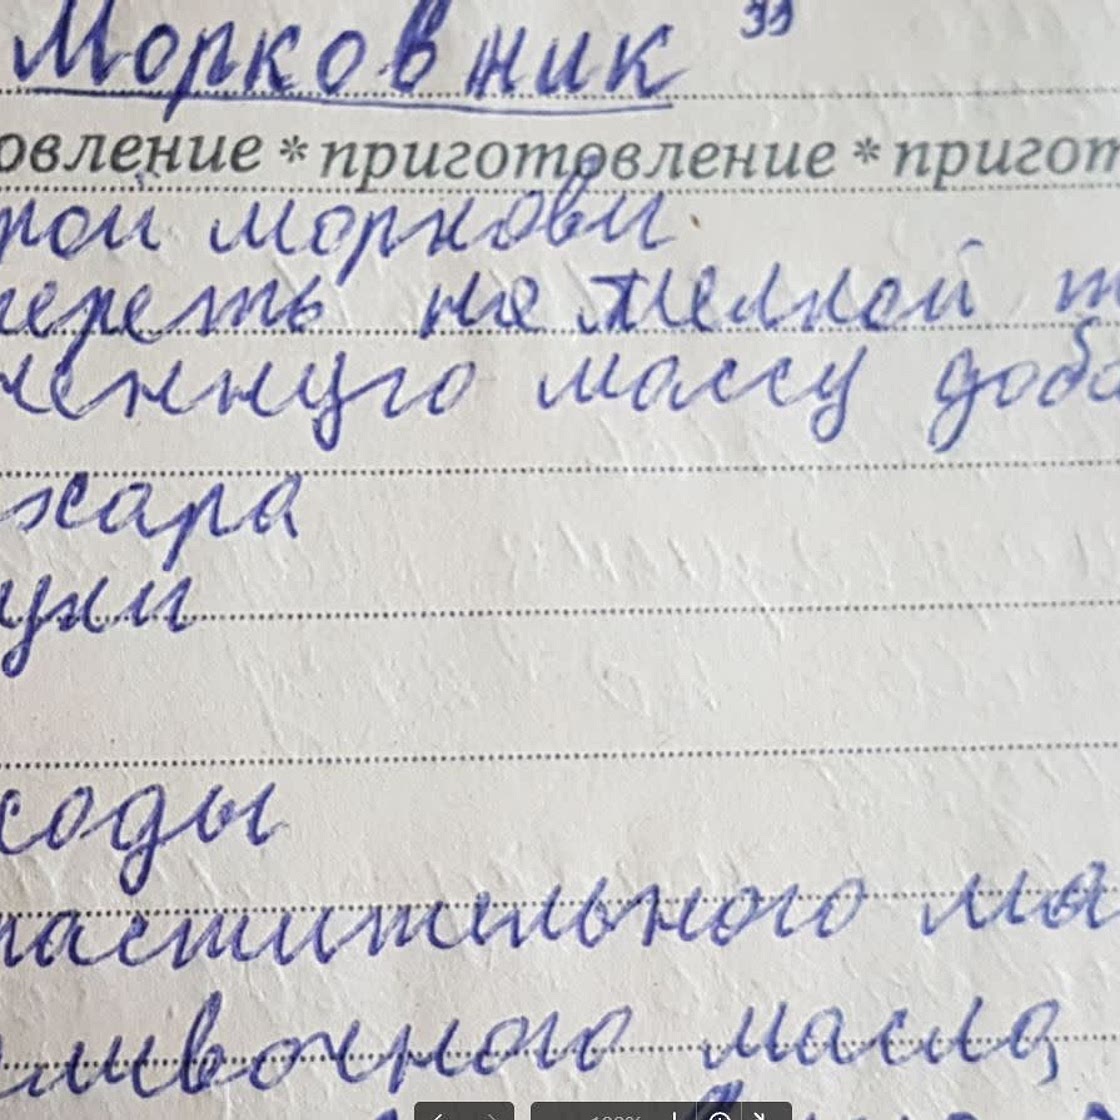 Морковник"
овление * приготовление * пригот
рой моркови
тереть на мелкой т
ченную массу доба
хара
уки
соды
растительного ма
ливочного масла